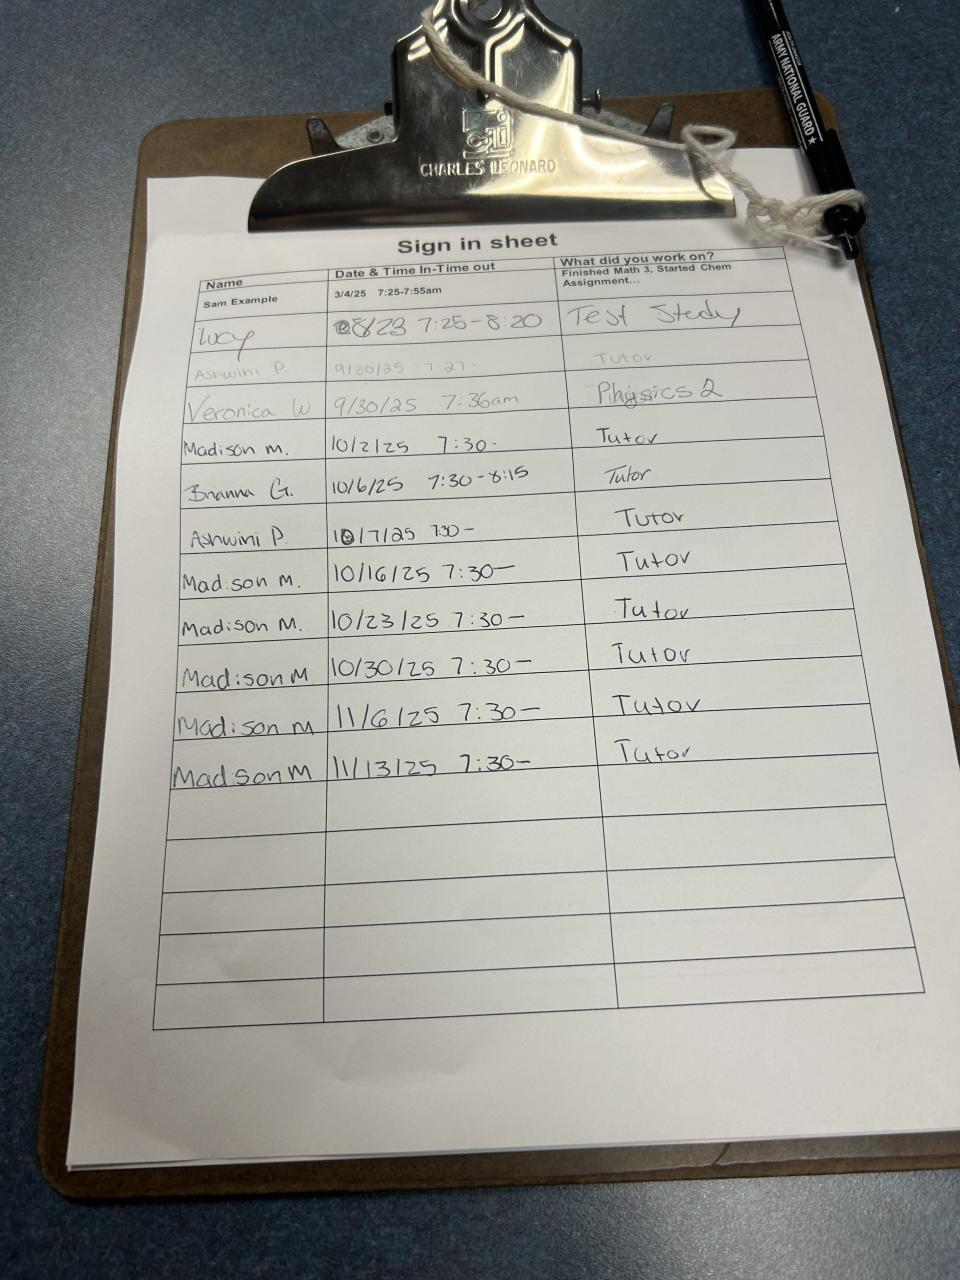 ARMY NATIONAL GUARD
CHARLES LEONARD
Sign in sheet
Name Date & Time In-Time out What did you work on?
Sam Example 3/4/25 7:25-7:55am Finished Math 3, Started Chem
Assignment...
Lucy 8/23 7:25-8:20 Test Study
Ashwini P. 9/30/25 7:27- Tutor
Veronica W 9/30/25 7:36am Physics 2
Madison M. 10/2/25 7:30- Tutor
Brianna G. 10/6/25 7:30-8:15 Tutor
Ashwini P. 10/7/25 7:30- Tutor
Madison M. 10/16/25 7:30- Tutor
Madison M. 10/23/25 7:30- Tutor
Madison M 10/30/25 7:30- Tutor
Madison M 11/6/25 7:30- Tutor
Madison M 11/13/25 7:30- Tutor